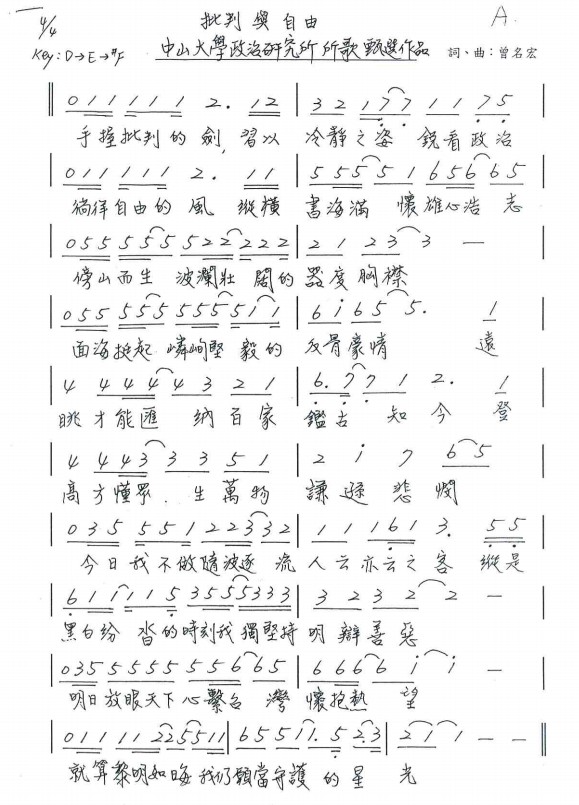 4/4 批判與自由 A.
Key: D→E→#F 中山大學政治研究所 所歌甄選作品 詞、曲:曾名宏
0 1 1 1 1 1 2. 1 2 | 3 2 1 7 7 1 1 7 5
手握批判的劍,習以 冷靜之姿 銳看政治
0 1 1 1 1 1 2. 1 1 | 5 5 5 5 1 6 5 6 6 5
徜徉自由的風 縱橫 書海滿 懷雄心浩志
0 5 5 5 5 5 5 2 2 2 2 2 | 2 1 2 3 3 —
傍山而生 波瀾壯闊的 器度胸襟
0 5 5 5 5 5 5 5 5 5 1 1 | 6 i 6 5 5. 1
面海挺起 嶙峋堅毅的 反骨豪情 遠
4 4 4 4 4 3 2 1 | 6. 7 7 1 2. 1
眺才能匯 納百家 鑑古 知今 登
4 4 4 3 3 3 5 1 | 2 i 7 6 5
高方懂眾.生萬物 謙遜悲憫
0 3 5 5 5 1 2 2 3 3 2 | 1 1 1 6 1 3. 5 5
今日我不做隨波逐流 人云亦云之客 縱是
6 1 1 1 1 5 3 5 5 5 3 3 3 | 3 2 3 2 2 —
黑白紛 沓的時刻我獨堅持 明辯善惡
0 3 5 5 5 5 5 5 5 6 6 5 | 6 6 6 6 i i —
明日放眼天下心繫台灣 懷抱熱 望
0 1 1 1 1 2 2 5 5 1 1 | 6 5 5 1 1. 5 2. 3 | 2 1 1 —
就算黎明如晦我仍願當守護的星 光